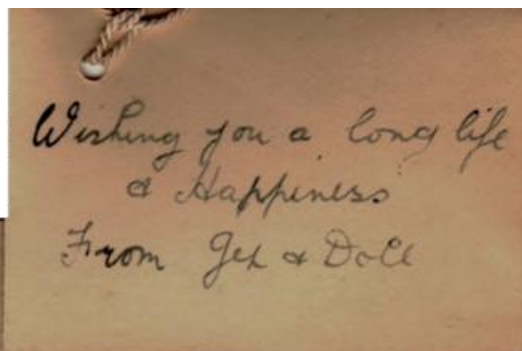 Wishing you a long life
& Happiness
From & Doll